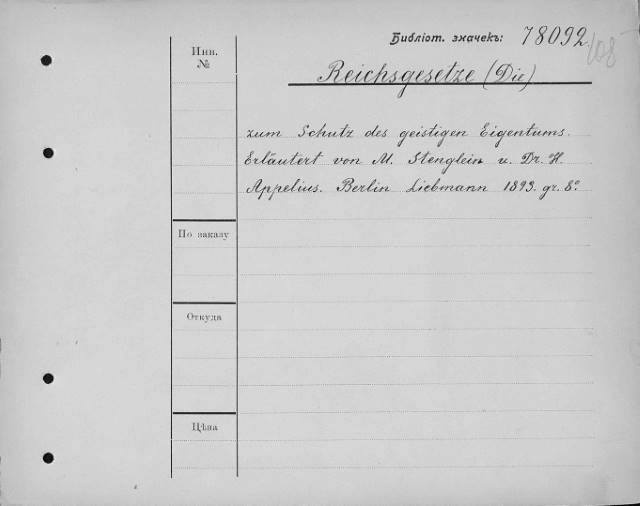 Библіот. значекъ: 78092
108
Инв.
№
Reichsgesetze (Die)
zum Schutz des geistigen Eigentums.
Erläutert von M. Stenglein u. Dr. H.
Appelius. Berlin Liebmann 1893. gr. 8°
По заказу
Откуда
Цѣна